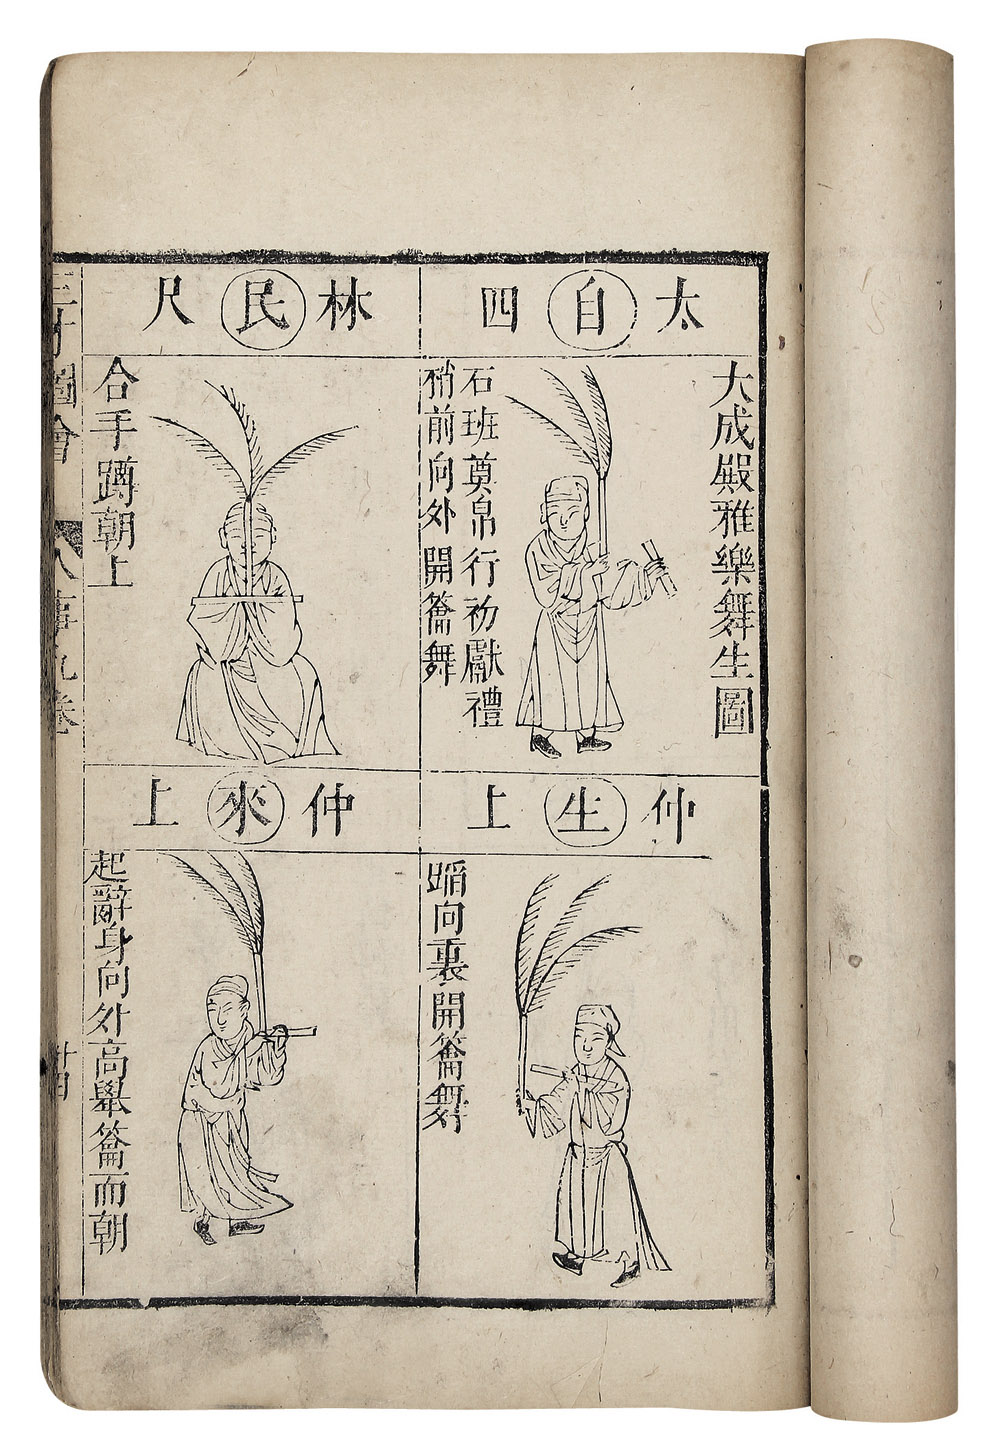 大成殿雅樂舞生圖
太自四
石班奠帛行初獻禮
稍前向外開籥舞
仲生上
蹈向裏開籥舞
林民尺
合手蹲朝上
仲來上
起辭身向外高舉籥而朝
三才圖會
人事九卷